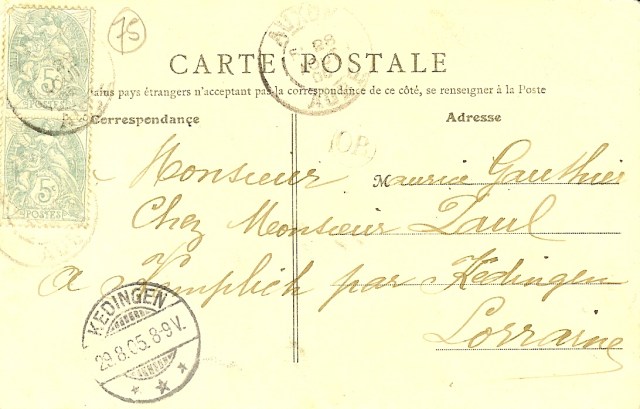 75
5c
POSTES
5c
POSTES
28
AUBE
CARTE POSTALE
tains pays étrangers n'acceptant pas la correspondance de ce côté, se renseigner à la Poste
Correspondance
Adresse
(OB)
Monsieur Maurice Gauthier
Chez Monsieur Paul
à Kemplich par Kédingen
Lorraine
KEDINGEN
29.8.05.8-9V.